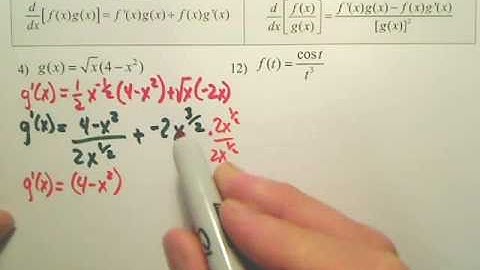 d/dx [f(x)g(x)] = f'(x)g(x) + f(x)g'(x)
d/dx [f(x)/g(x)] = f'(x)g(x) − f(x)g'(x) / [g(x)]²
4) g(x) = √x(4 − x²)
12) f(t) = cos t / t³
g'(x) = 1/2 x^-1/2 (4-x²) + √x(-2x)
g'(x) = 4-x² / 2x^1/2 + -2x^3/2 · 2x^1/2 / 2x^1/2
g'(x) = (4-x²)